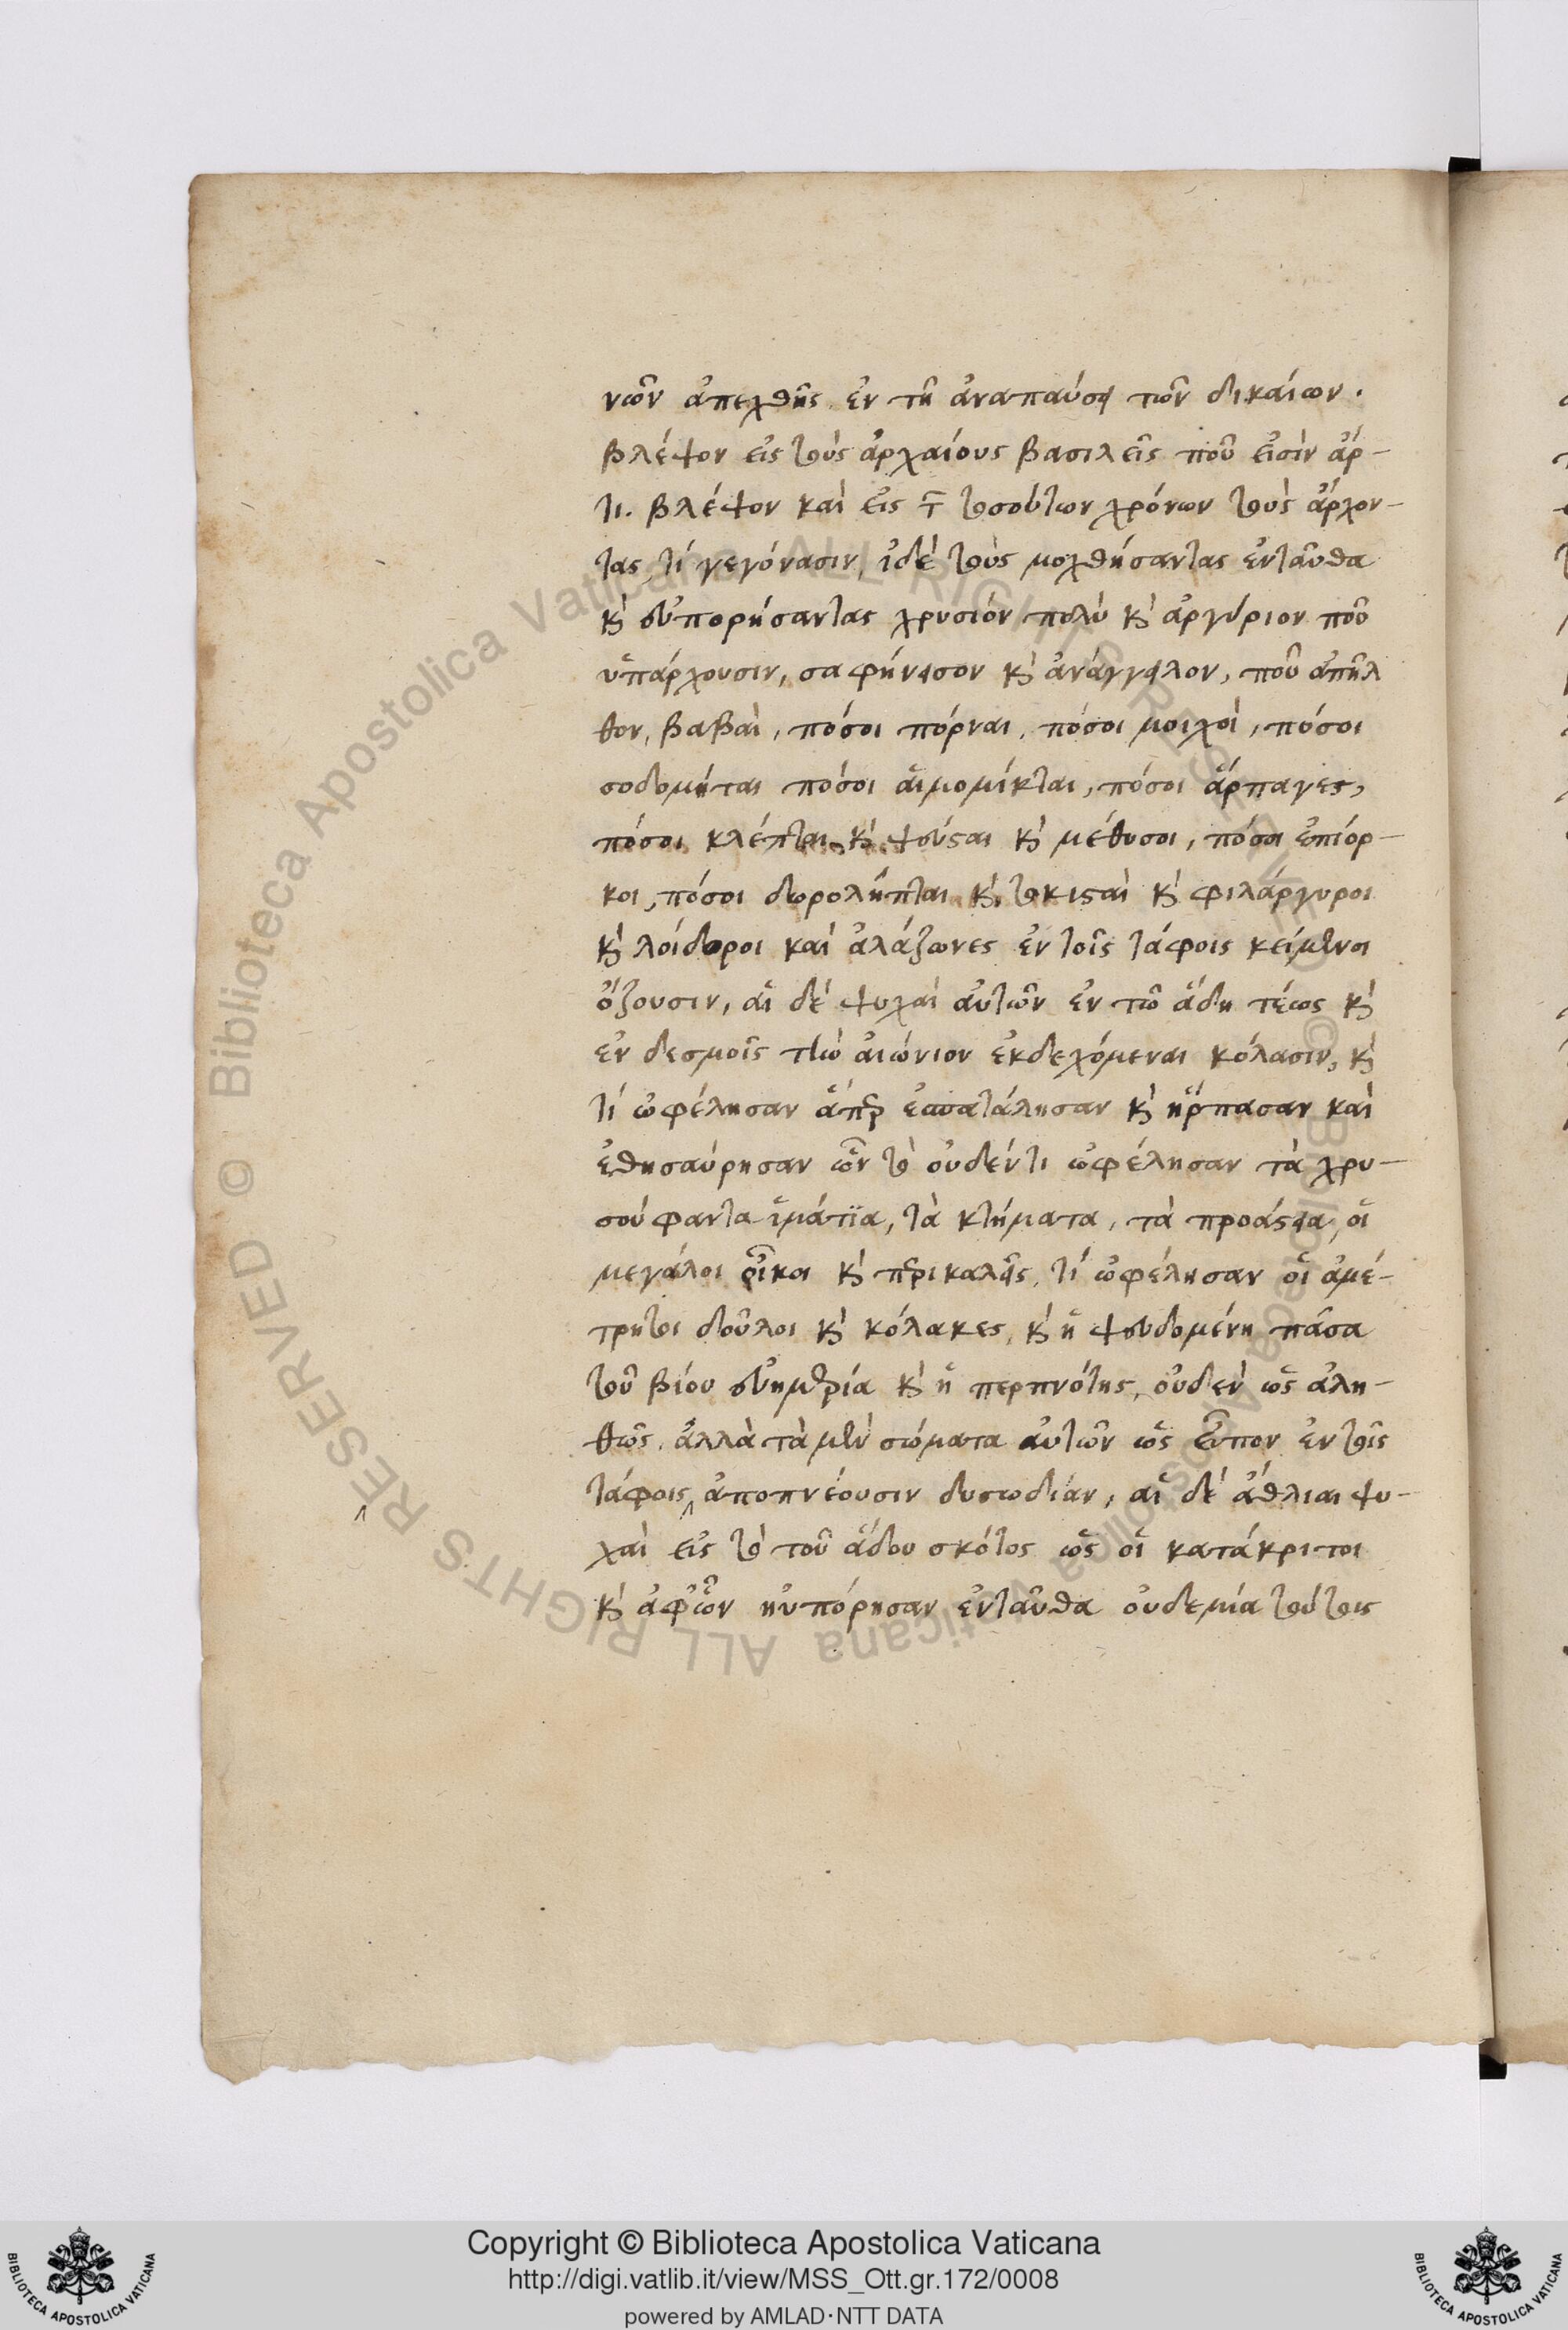 νῶν ἀπελθῆς ἐν τῆ ἀναπαύσει τῶν δικαίων.
βλέψον εἰς τοὺς ἀρχαίους βασιλεῖς ποῦ εἰσὶν ἄρ-
τι. βλέψον καὶ εἰς τ̅ τοσούτων χρόνων τοὺς ἄρχον-
τας, τί γεγόνασιν, ἰδὲ τοὺς μοχθήσαντας ἐνταῦθα
κὴ εὐπορήσαντας χρυσιόν πολὺ κὴ ἀργύριον ποῦ
ὑπάρχουσιν, σαφήνεισον κὴ ἀνάγγειλον, ποῦ ἀπῆλ
θον, βαβαὶ, πόσοι πόρναι, πόσοι μοιχοὶ, πόσοι
σοδομήται πόσοι αἱμομίκται, πόσοι ἅρπαγες,
πόσοι κλέπται κὴ ψεύσται κὴ μέθυσοι, πόσοι ἐπίορ-
κοι, πόσοι δωρολήπται κὴ τοκισταὶ κὴ φιλάργυροι
κὴ λοίδοροι καὶ ἀλάζωνες ἐν τοῖς τάφοις κείμενοι
ὄζουσιν, αἱ δὲ ψυχαὶ αὐτῶν ἐν τῶ ἅδη τέως κὴ
ἐν δεσμοῖς τὴν αἰώνιον ἐκδεχόμεναι κόλασιν, κὴ
τί ὠφέλησαν ἅπερ ἐσπατάλησαν κὴ ἥρπασαν καὶ
ἐθησαύρησαν ὧν τὸ οὐδέν τι ὠφέλησαν τὰ χρυ-
σούφαντα ἱμάτϊα, τὰ κτήματα, τὰ προάστεια, οἱ
μεγάλοι οἶκοι κὴ περικαλεῖς, τί ὠφέλησαν οἱ ἀμέ-
τρητοι δοῦλοι κὴ κόλακες, κὴ ἡ ψευδομένη πᾶσα
τοῦ βίου εὐημερία κὴ ἡ περπνότης, οὐδὲν ὡς ἀλη-
θῶς, ἀλλὰ τὰ μὲν σώματα αὐτῶν ὡς εἶπον ἐν τοῖς
τάφοις, ἀποπνέουσιν δυσωδίαν, αἱ δὲ ἄθλιαι ψυ-
χαὶ εἰς τὸ τοῦ ἅδου σκότος ὡς οἱ κατάκριτοι
κὴ ἀφ' ὧν ηὐπόρησαν ἐνταῦθα οὐδεμία τούτοις
Copyright © Biblioteca Apostolica Vaticana
http://digi.vatlib.it/view/MSS_Ott.gr.172/0008
powered by AMLAD·NTT DATA